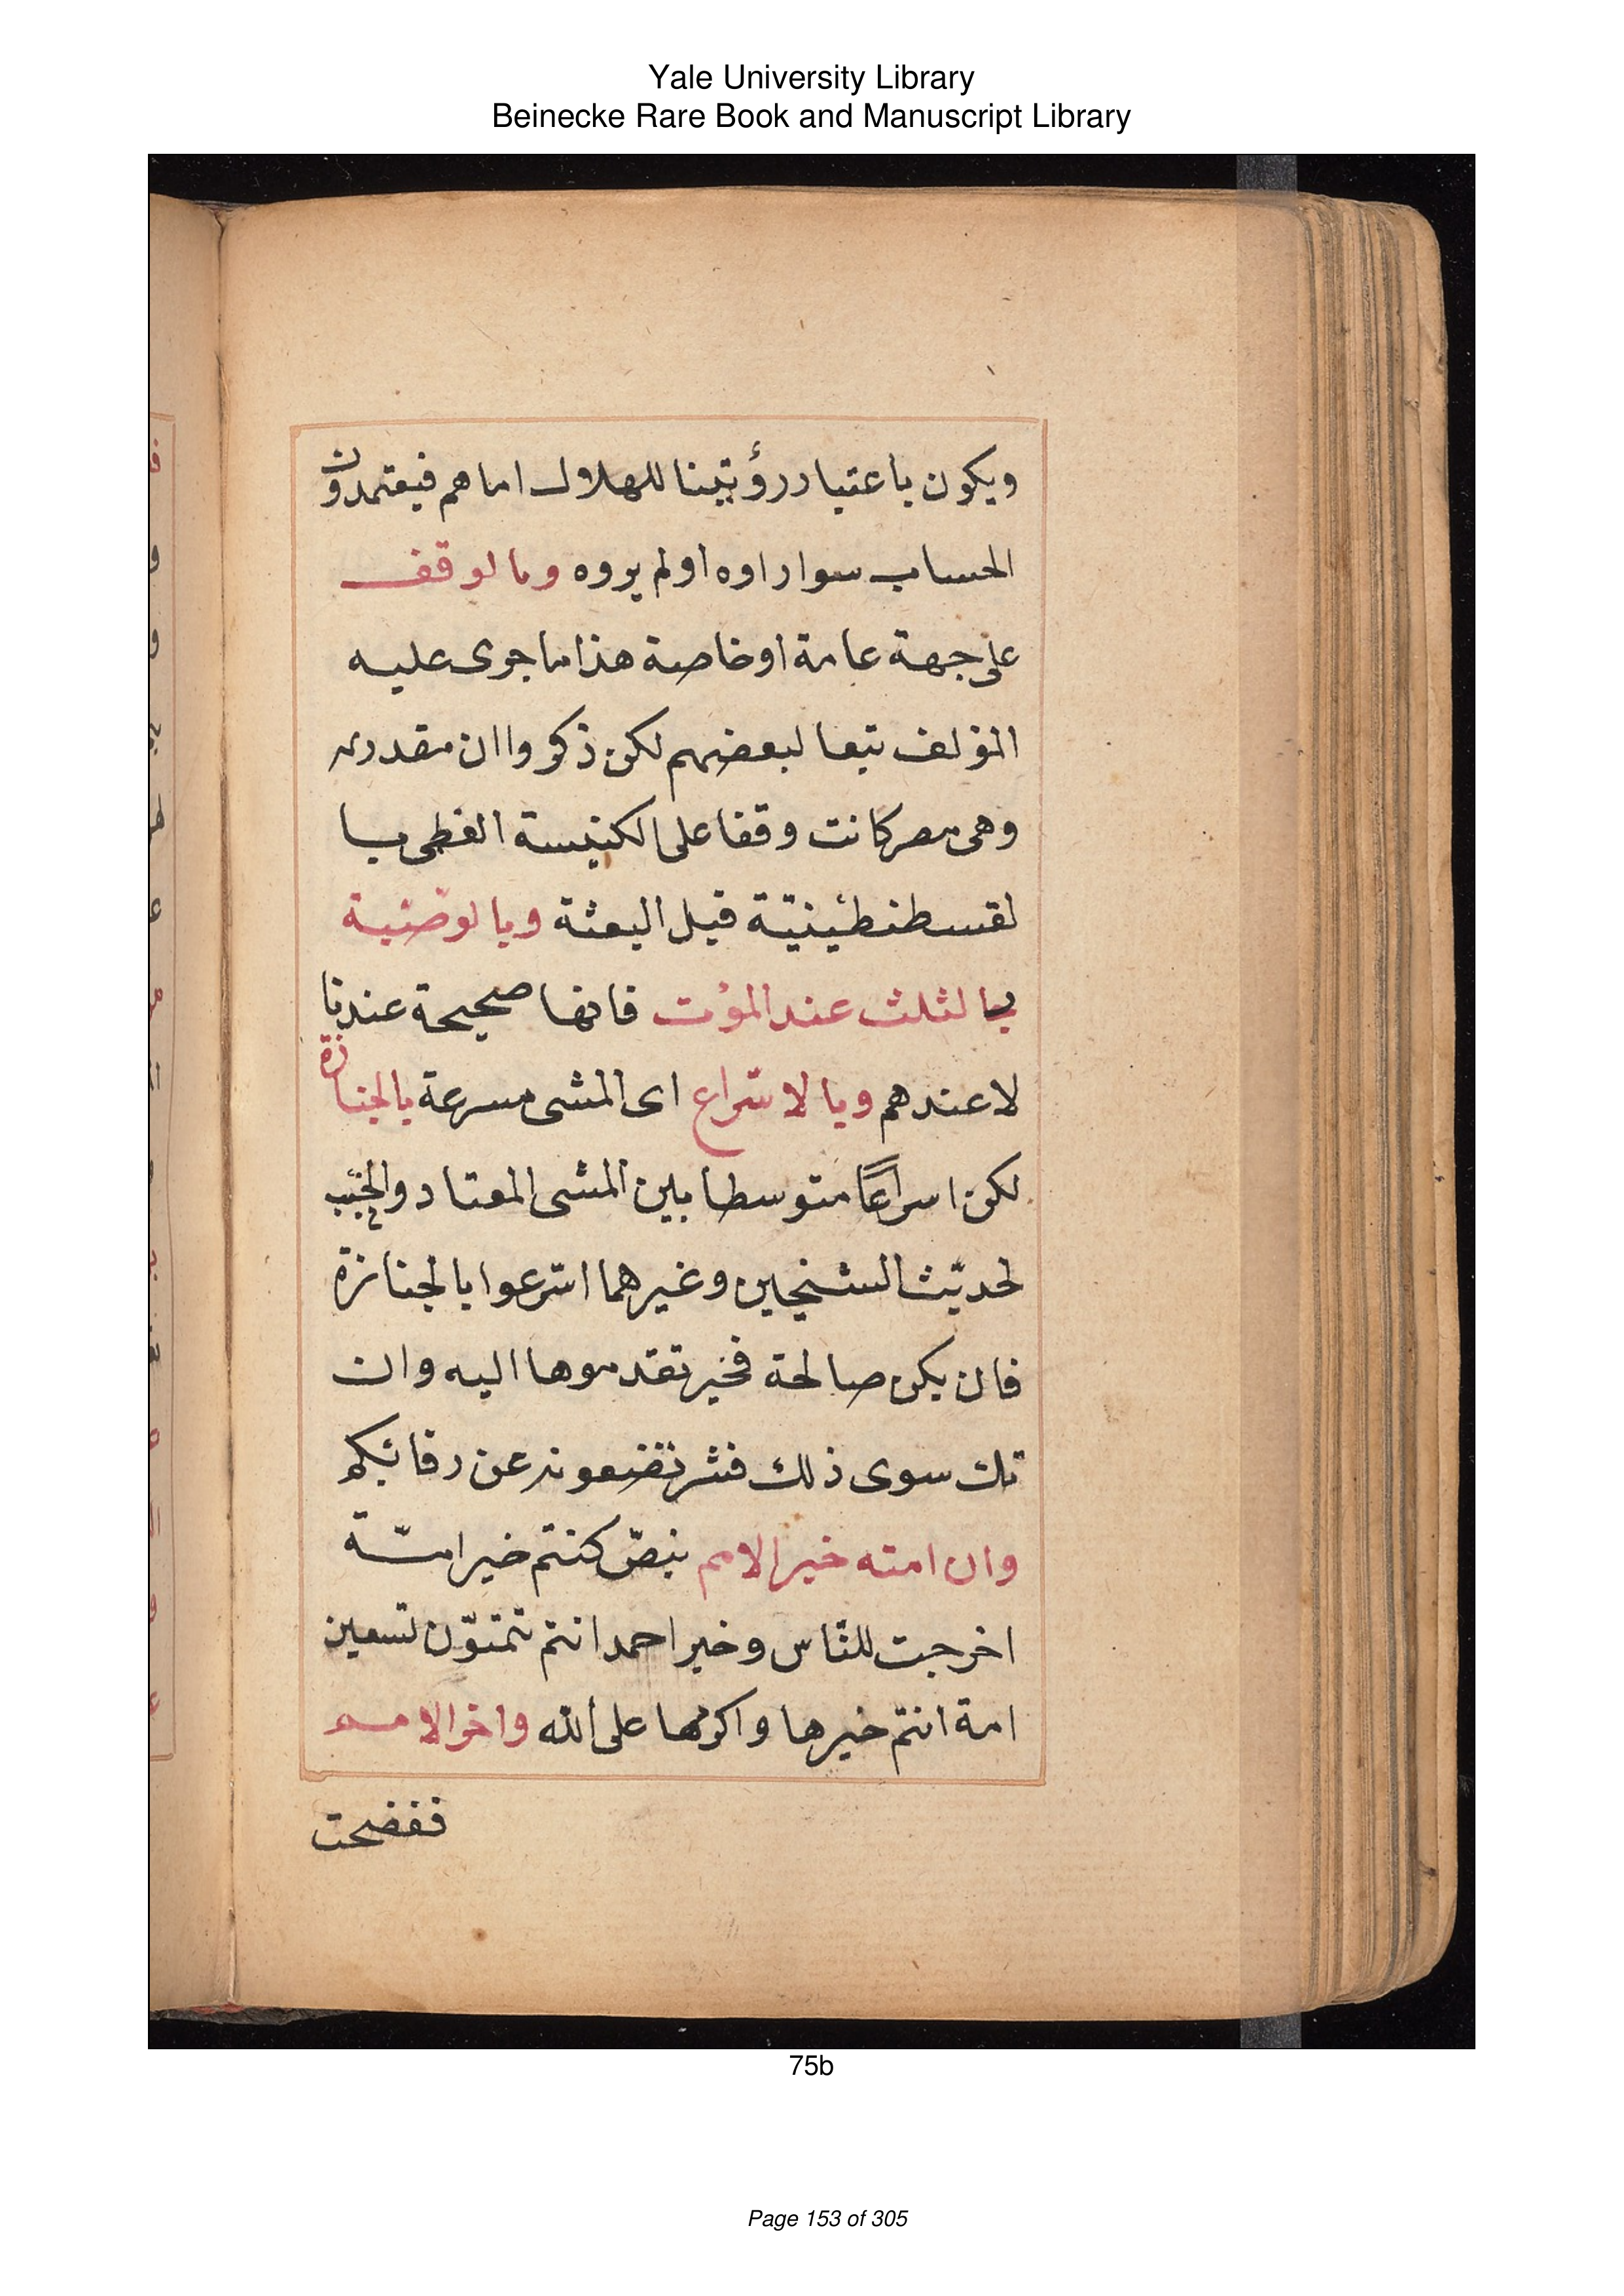 Yale University Library
Beinecke Rare Book and Manuscript Library
ويكون باعتبار رؤيتنا للهلال اما هم فيعتمدون
الحساب سوار اوه اولم يروه وبالوقف
على جهة عامة اوخاصة هذا ما جرى عليه
المؤلف تبعا لبعضهم لكن ذكروا ان
وهى مصر كانت وقفا على الكنيسة العظمى با
لقسطنطينية قبل البعثة وبالوصية
بالثلث عند الموت فانها صحيحة عندنا
لا عندهم وبالاسراع اى المشى مسرعة بالجنازة
لكن اسراعًا متوسطا بين المشى المعتاد والخبب
لحديث الشيخين وغيرهما اسرعوا بالجنازة
فان يكن صالحة فخير تقدموها اليه وان
تك سوى ذلك فشر تضعونه عن رقابكم
وان امته خير الامم بنصّ كنتم خير امّة
اخرجت للنّاس وخبر احمد انتم تمتوّن تسعين
امة انتم خيرها واكرمها على الله واخر الامم
ففضحت
75b
Page 153 of 305